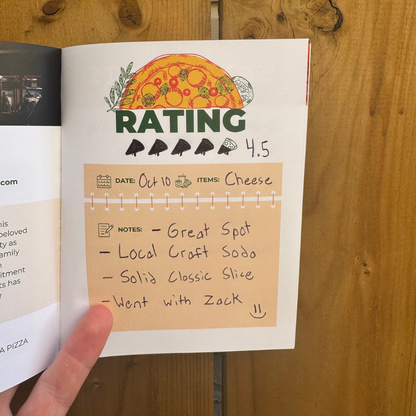 RATING
4.5
DATE: Oct 10 ITEMS: Cheese
NOTES: - Great Spot
- Local Craft Soda
- Solid Classic Slice
- Went with Zack
.com
his
beloved
ty as
amily
itment
ts has
A PIZZA